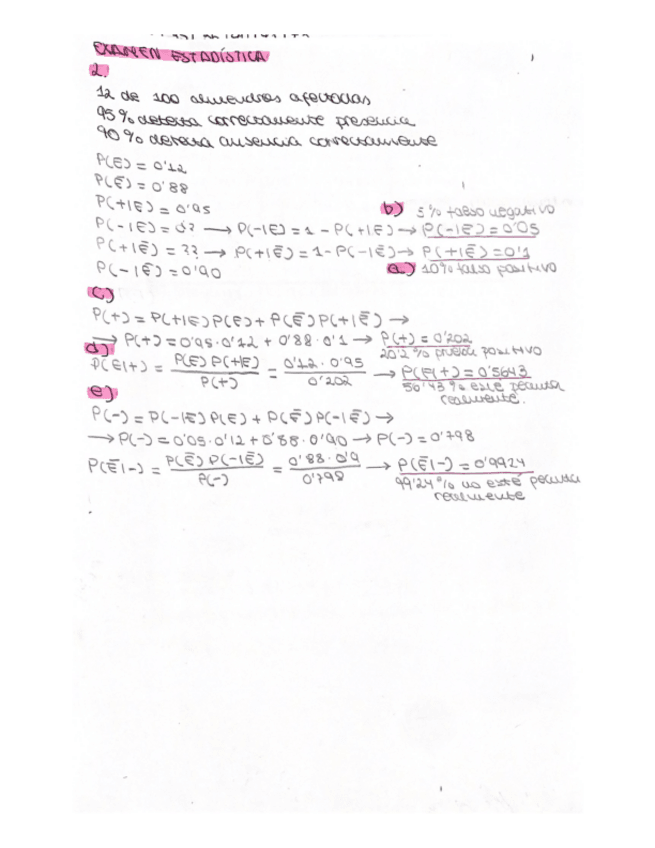 EXAMEN ESTADÍSTICA
2.
12 de 100 almendros afectados
95% detecta correctamente presencia
90% detecta ausencia correctamente
P(E) = 0'12
P(Ē) = 0'88
P(+|E) = 0'95
b) 5% falso negativo
P(-|E) = ¿? → P(-|E) = 1 - P(+|E) → P(-|E) = 0'05
P(+|Ē) = ?? → P(+|Ē) = 1 - P(-|Ē) → P(+|Ē) = 0'1
P(-|Ē) = 0'90
a) 10% falso positivo
c)
P(+) = P(+|E) P(E) + P(Ē) P(+|Ē) →
→ P(+) = 0'95 · 0'12 + 0'88 · 0'1 → P(+) = 0'202
20'2% prueba positivo
d)
P(E|+) = P(E) P(+|E) / P(+) = 0'12 · 0'95 / 0'202 → P(E|+) = 0'5643
56'43% esté
realmente.
e)
P(-) = P(-|E) P(E) + P(Ē) P(-|Ē) →
→ P(-) = 0'05 · 0'12 + 0'88 · 0'90 → P(-) = 0'798
P(Ē|-) = P(Ē) P(-|Ē) / P(-) = 0'88 · 0'9 / 0'798 → P(Ē|-) = 0'9924
99'24% no esté
realmente